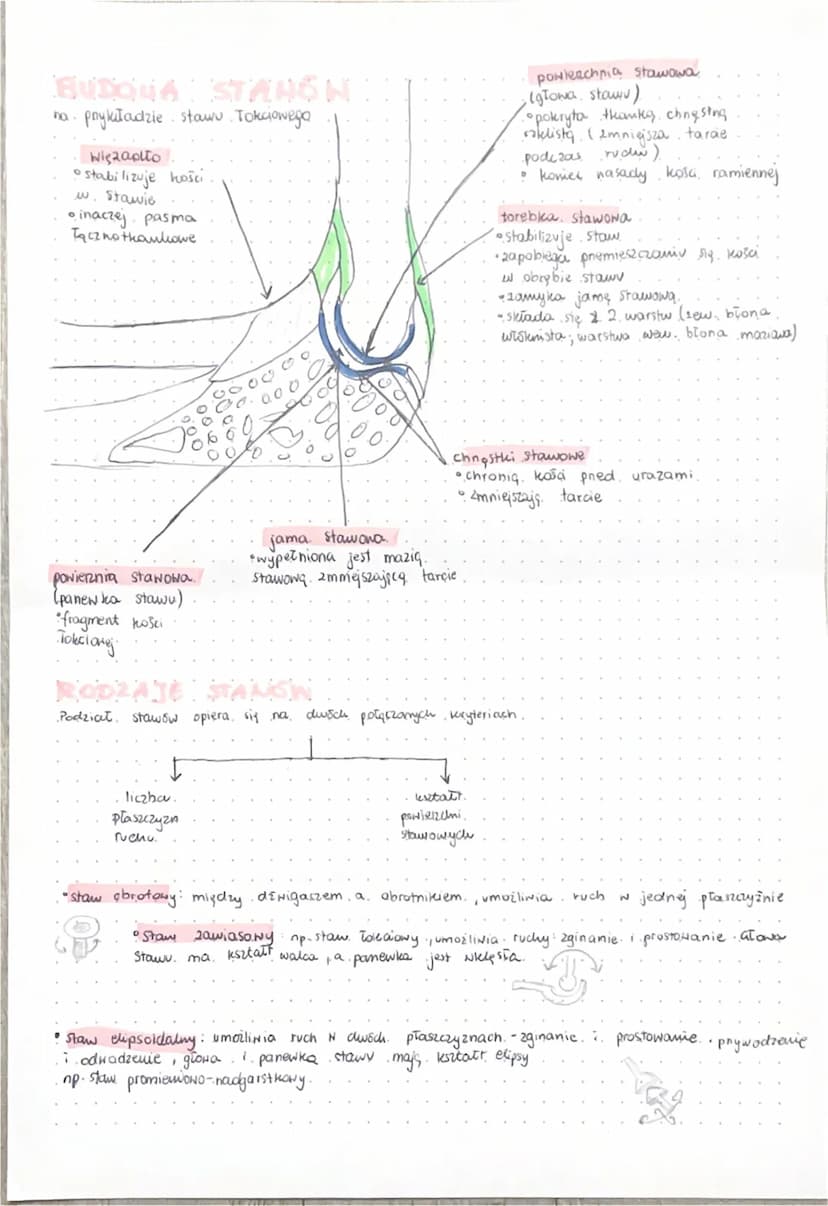 BUDOWA STAWÓW
na przykładzie stawu łokciowego
więzadło
• stabilizuje kości
w stawie
• inaczej pasma
łącznotkankowe
powierzchnia stawowa
(głowa stawu)
• pokryta tkanką chrzęstną
szklistą (zmniejsza tarcie
podczas ruchu)
• koniec nasady kości ramiennej
torebka stawowa
• stabilizuje staw
• zapobiega przemieszczaniu się kości
w obrębie stawu
• zamyka jamę stawową
• składa się z 2 warstw (zew. błona
włóknista; warstwa wew. błona maziowa)
chrząstki stawowe
• chronią kości przed urazami
• zmniejszają tarcie
jama stawowa
• wypełniona jest mazią
stawową zmniejszającą tarcie
powierznia stawowa
(panewka stawu)
• fragment kości
łokciowej
RODZAJE STAWÓW
Podział stawów opiera się na dwóch połączonych kryteriach.
liczba
płaszczyzn
ruchu
kształt
powierzchni
stawowych
• staw obrotowy: między dźwigaczem a obrotnikiem, umożliwia ruch w jednej płaszczyźnie
• staw zawiasowy: np. staw łokciowy, umożliwia ruchy: zginanie i prostowanie. Głowa
stawu ma kształt walca, a panewka jest wklęsła.
• staw elipsoidalny: umożliwia ruch w dwóch płaszczyznach - zginanie i prostowanie, przywodzenie
i odwodzenie, głowa i panewka stawu mają kształt elipsy
np. staw promieniowo-nadgarstkowy.